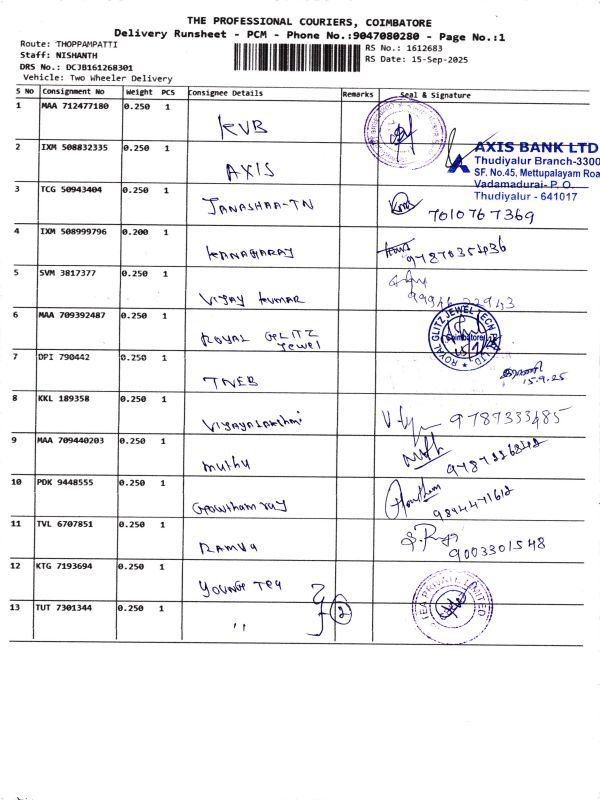 THE PROFESSIONAL COURIERS, COIMBATORE
Delivery Runsheet - PCM - Phone No.:9047080280 - Page No.:1
Route: THOPPAMPATTI
Staff: NISHANTH
DRS No.: DCJB161268301
Vehicle: Two Wheeler Delivery
RS No.: 1612683
RS Date: 15-Sep-2025
S No Consignment No Weight PCS Consignee Details Remarks Seal & Signature
1 MAA 712477180 0.250 1 KVB
2 IXM 508832335 0.250 1 AXIS
AXIS BANK LTD
Thudiyalur Branch-3300
SF. No.45, Mettupalayam Roa
Vadamadurai- P. O.
Thudiyalur - 641017
3 TCG 50943404 0.250 1 JANASHAA-TN 7010767369
4 IXM 508999796 0.200 1 KANAGARAJ 9787035
5 SVM 3817377 0.250 1 VIJAY KUMAR
6 MAA 709392487 0.250 1 ROYAL GLITZ Jewel
ROYAL GLITZ JEWEL TECH
Coimbatore
7 DPI 790442 0.250 1 TNEB
15.9.25
8 KKL 189358 0.250 1 Vijayalakshmi 9787333485
9 MAA 709440203 0.250 1 muthu
10 PDK 9448555 0.250 1 Gowtham raj Gowtham
9894471612
11 TVL 6707851 0.250 1 RAMYA
9003301548
12 KTG 7193694 0.250 1 YOUNGE Tea
TEA PRIVATE LIMITED
13 TUT 7301344 0.250 1 " 2